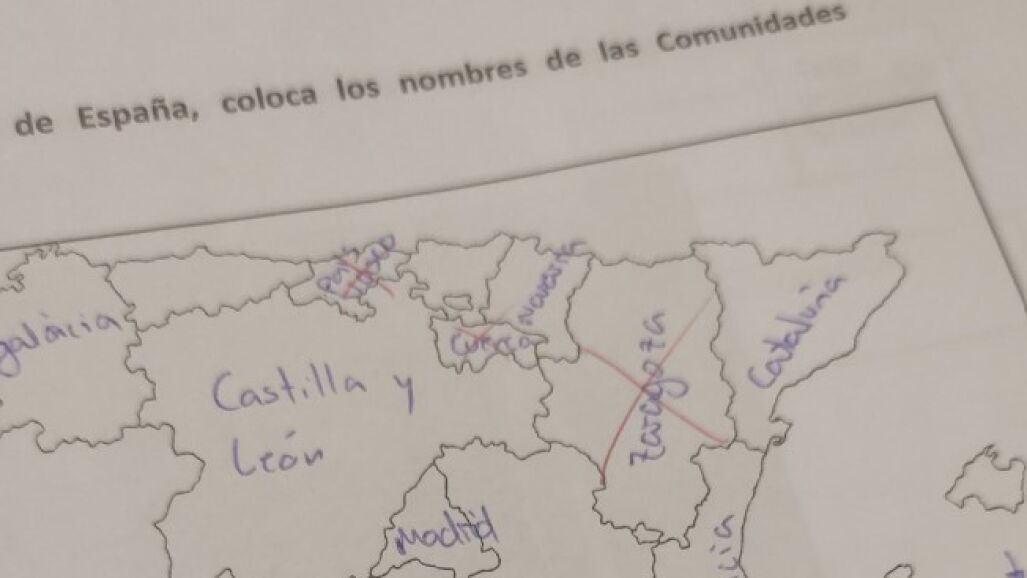 de España, coloca los nombres de las Comunidades
País
Vasco
galácia
Navarra
Cuenca
Zaragoza
Cataluña
Castilla y
León
Madrid
cia